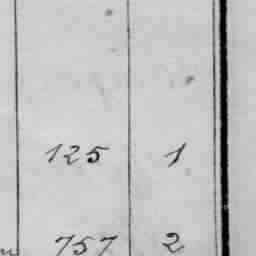 125 1
757 2